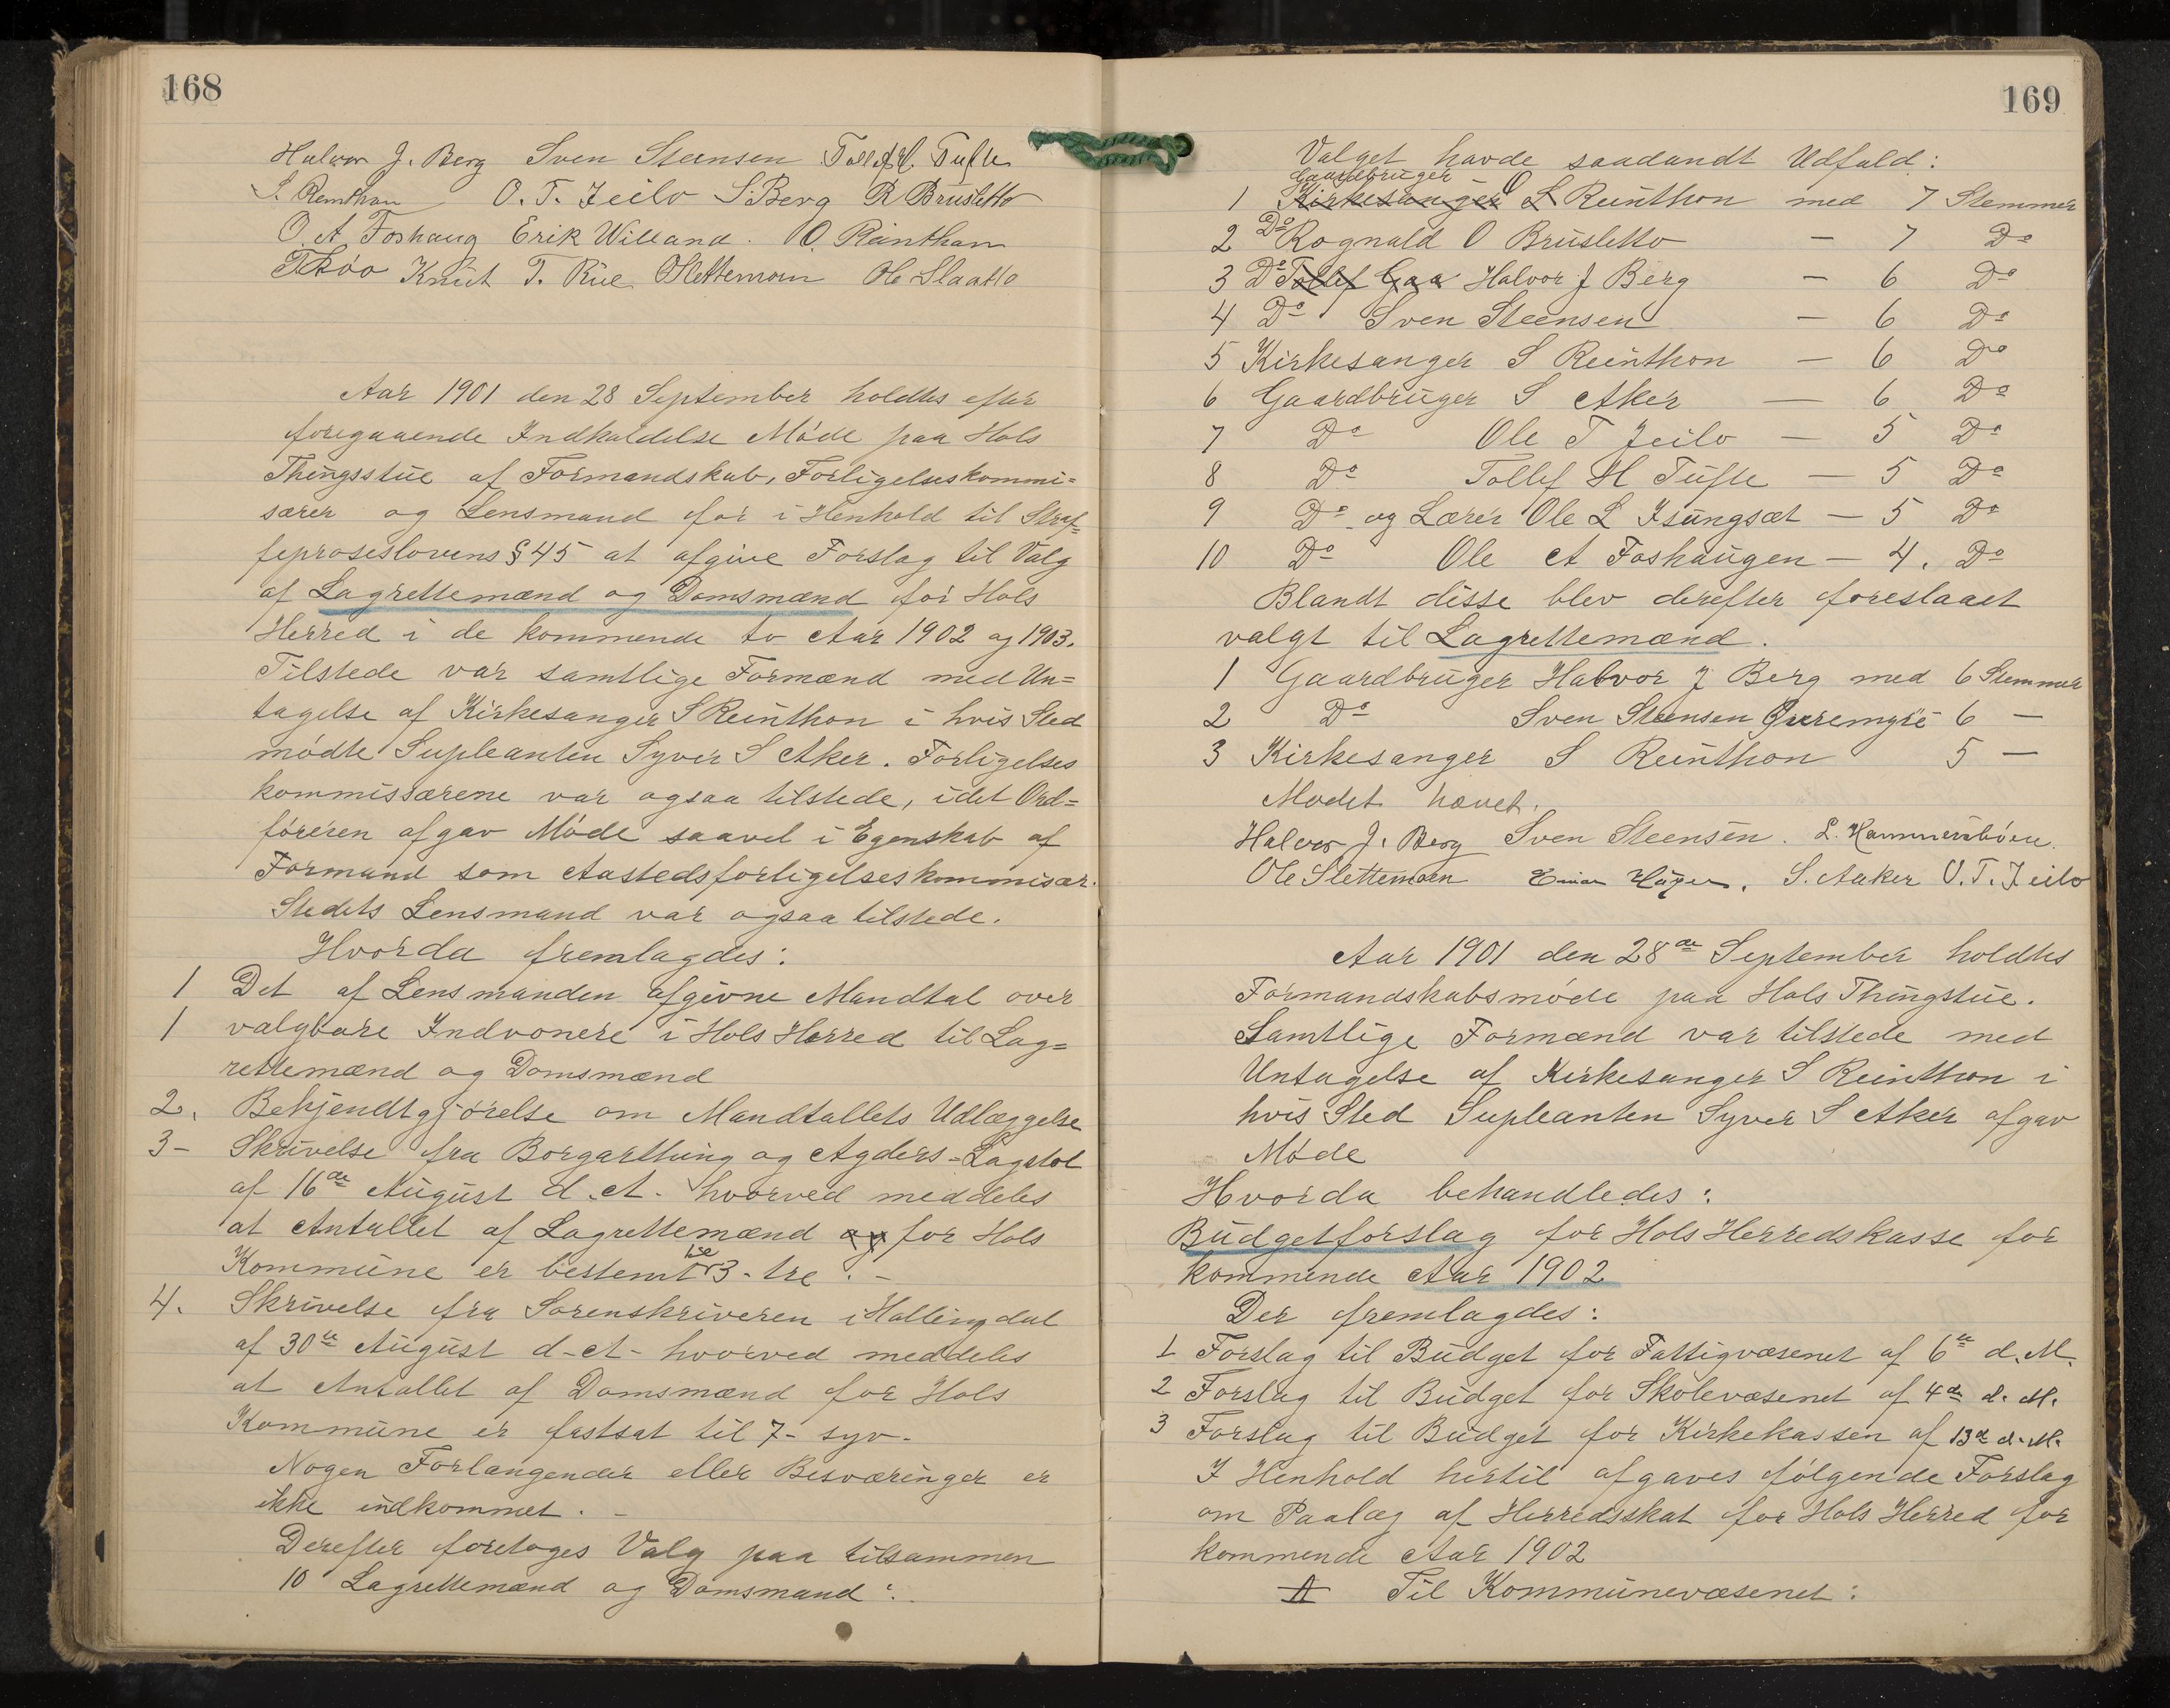 168
Halvor J. Berg Sven Steensen Tollef H. Tufte
S. Reinthon O. T. Jeilo S. Berg R Brusletto
O. A Foshaug Erik Willand. O. Reinthon
Knut T. Rue O Slettemoen Ole Slaatto
Aar 1901 den 28 September holdtes efter
foregaaende Indkaldelse Møde paa Hols
Thingsstue af Formandskab, Forligelseskommi=
særer og Lensmand for i Henhold til Straf=
feproseslovens § 45 at afgive Forslag til Valg
af Lagrettemænd og Domsmænd for Hols
Herred i de kommende to Aar 1902 og 1903.
Tilstede var samtlige Formænd med Un=
tagelse af Kirkesanger S Reinthon i hvis Sted
mødte Supleanten Syver S Aker. Forligelses
kommissærene var ogsaa tilstede, idet Ord=
føreren afgav Møde saavel i Egenskab af
Formand som Aastedsforligelseskommisær.
Stedets Lensmand var ogsaa tilstede.
Hvorda fremlagdes:
1 Det af Lensmanden afgivne Mandtal over
1 valgbare Indvonere i Hols Herred til Lag=
rettemænd og Domsmænd
2. Bekjendtgjørelse om Mandtallets Udlæggelse
3- Skrivelse fra Borgarthing og Agders-Lagstol
af 16de August d. A. hvorved meddeles
at Antallet af Lagrettemænd og for Hols
Kommune er bestemt til 3- tre.-
4. Skrivelse fra Sorenskriveren i Hallingdal
af 30te August d-A- hvorved meddeles
at Antallet af Domsmænd for Hols
Kommune er fastsat til 7- syv-
Nogen Forlangender eller Besværinger er
ikke indkommet.-
Derefter foretoges Valg paa tilsammen
10 Lagrettemænd og Domsmænd:
169
Valget havde saadandt Udfald:
Gaardbruger
1 Kirkesanger L Reinthon med 7 Stemmer
2 Do Rognald O Brusletto - 7 Do
3 Do Tollef Gaa Halvor J Berg - 6 Do
4 Do Sven Steensen - 6 Do
5 Kirkesanger S Reinthon - 6 Do
6 Gaardbruger S Aker - 6 Do
7 Do Ole T Jeilo - 5 Do
8 Do Tollef H Tufte - 5 Do
9 Do og Lærer Ole L Isungsæt - 5 Do
10 Do Ole A Foshaugen - 4. Do
Blandt disse blev derefter foreslaaet
valgt til Lagrettemænd.
1 Gaardbruger Halvor J Berg med 6 Stemmer
2 Do Sven Steensen 6 -
3 Kirkesanger S Reinthon 5 -
Mødet hævet.
Halvor J. Berg Sven Steensen. L. Hammersbøen.
Ole Slettemoen S. Aaker O. T. Jeilo
Aar 1901 den 28de September holdtes
Formandskabsmøde paa Hols Thingstue.
Samtlige Formænd var tilstede med
Untagelse af Kirkesanger S Reinthon i
hvis Sted Supleanten Syver S Aker afgav
Møde
Hvorda behandledes:
Budgetforslag for Hols Herredskasse for
kommende Aar 1902
Der fremlagdes:
1 Forslag til Budget for Fattigvæsenet af 6te d. M.
2 Forslag til Budget for Skolevæsenet af 4de d. M.
3 Forslag til Budget for Kirkekassen af 13de d. M.
I Henhold hertil afgaves følgende Forslag
om Paalæg af Herredsskat for Hols Herred for
kommende Aar 1902
A Til Kommunevæsenet: